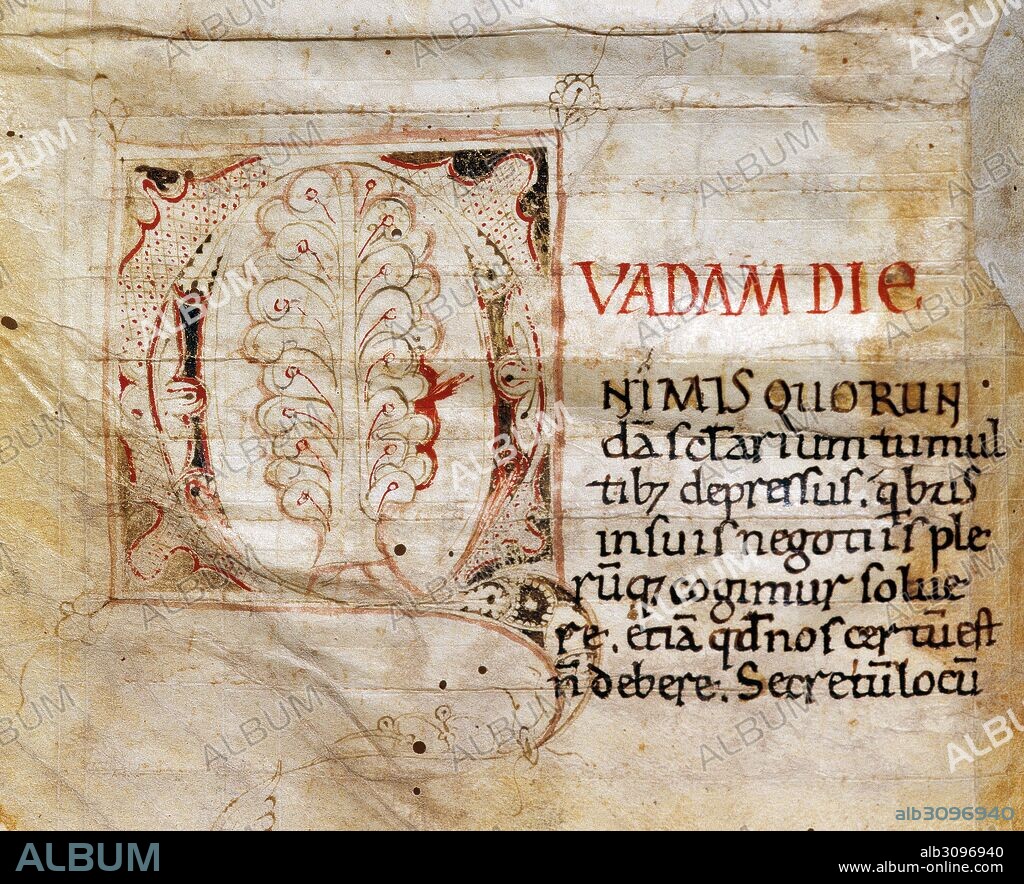 Q
VADAM DIE
NIMIS QUORUN
dā sclarium tumul
tib; depressus. qbus
in suis negotiis ple
rūq; cogimur solue
re. etiā qd nos certū est
n̄ debere. Secretū locū
ALBUM
alb3096940
alb3096940
www.album-online.com